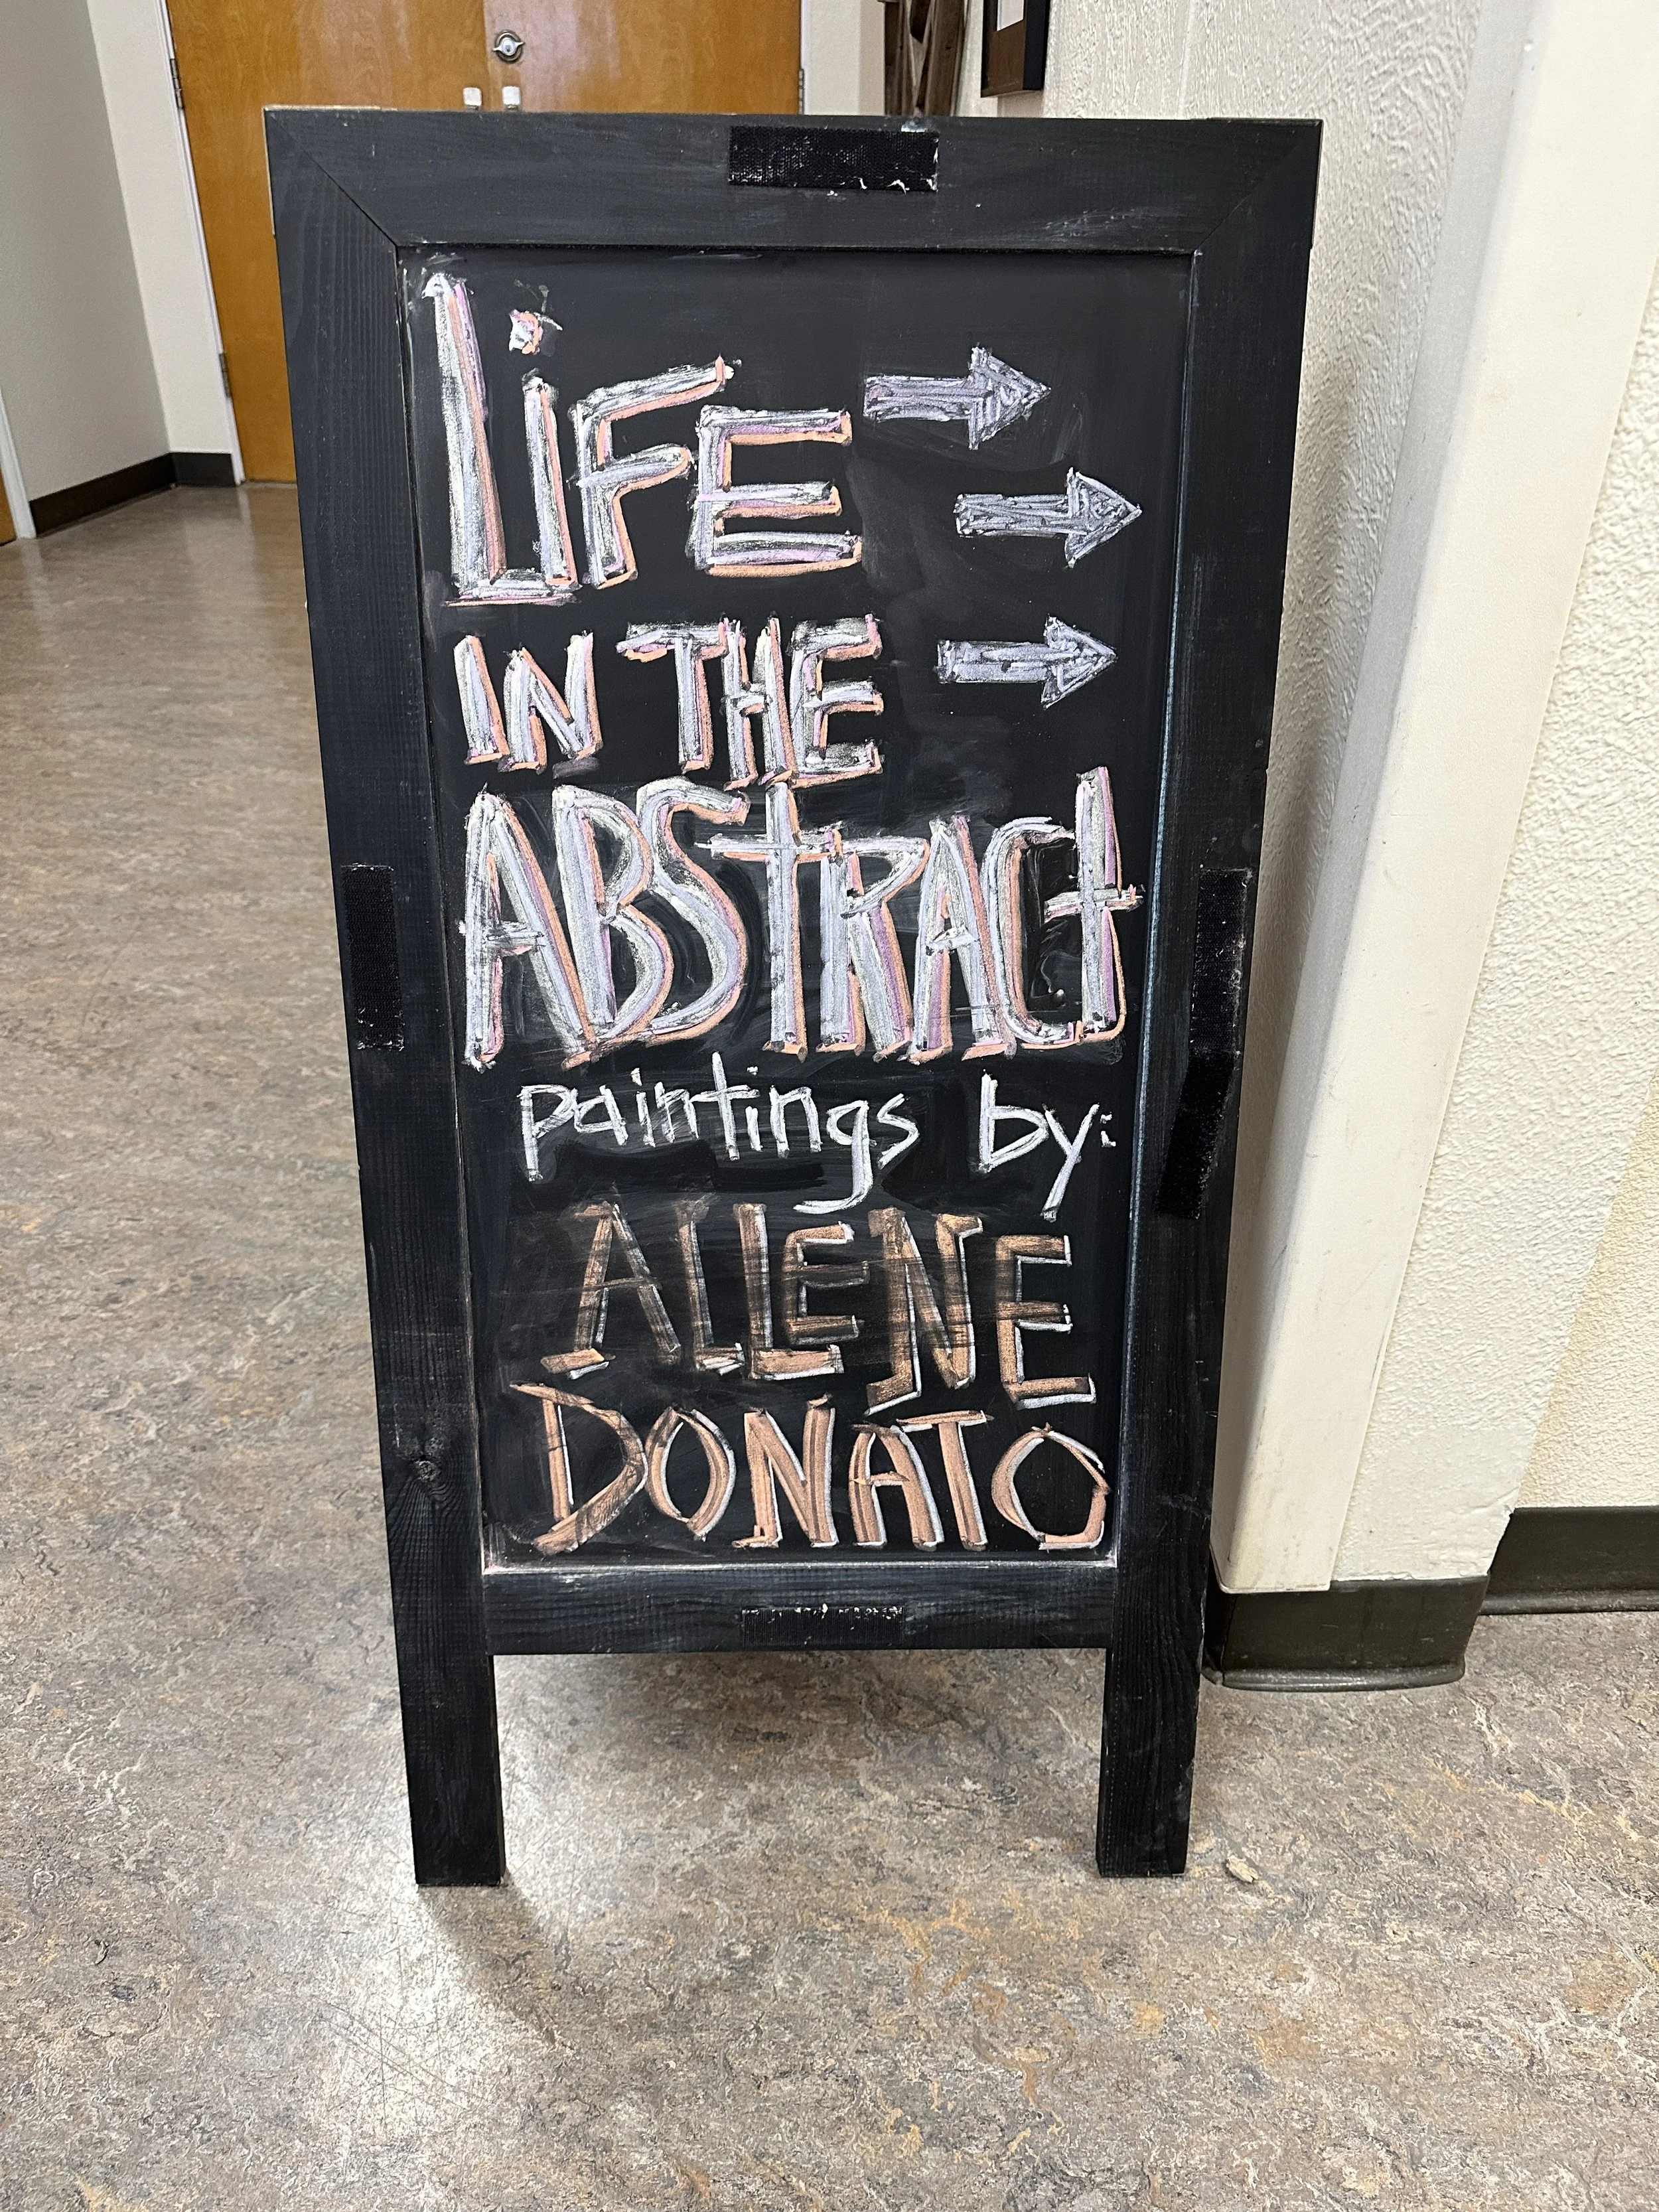 LiFE
IN THE
ABStRACt
paintings by:
ALLENE
DONATO